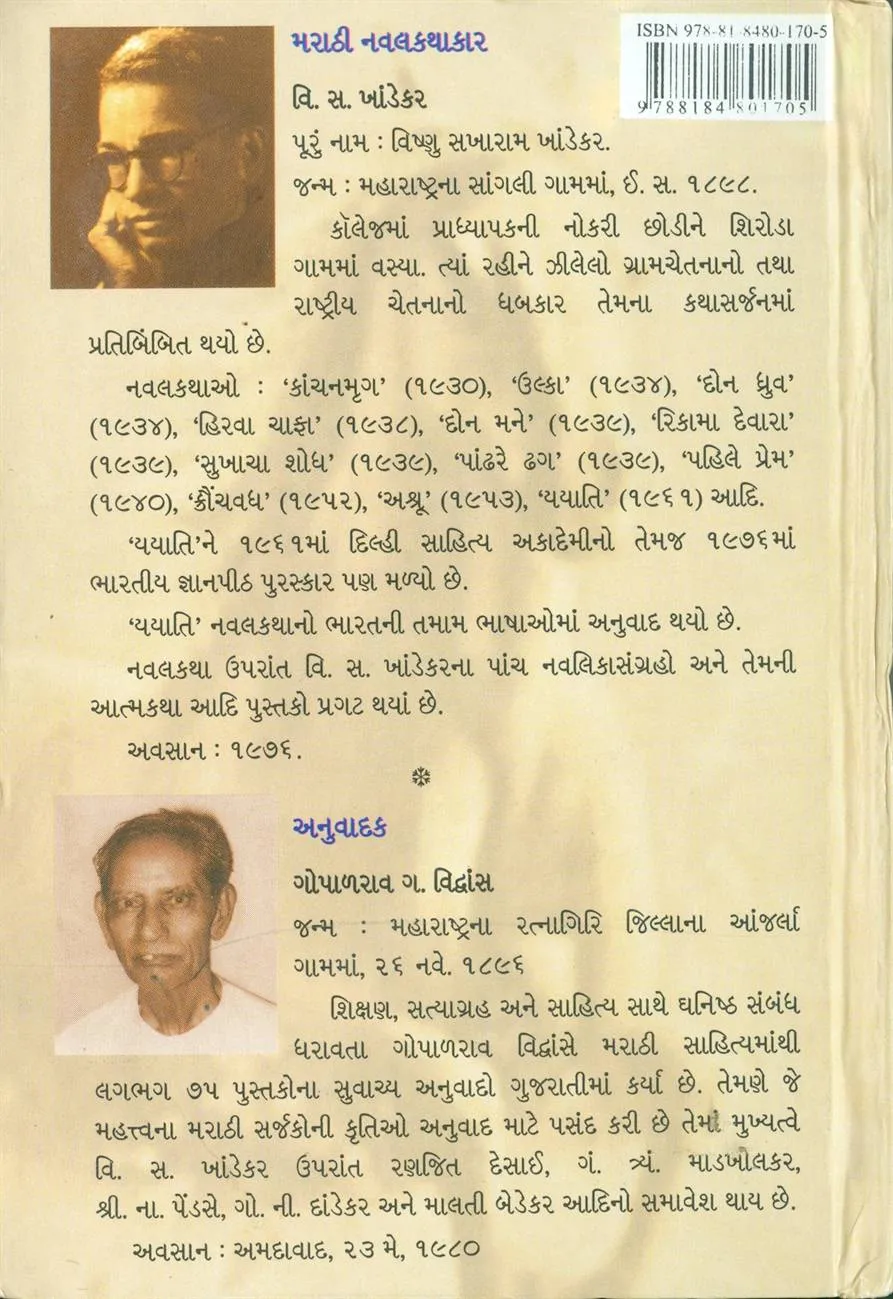 ISBN 978-81-8480-170-5
9 788184 801705
મરાઠી નવલકથાકાર
વિ. સ. ખાંડેકર
પૂરું નામ : વિષ્ણુ સખારામ ખાંડેકર.
જન્મ : મહારાષ્ટ્રના સાંગલી ગામમાં, ઈ. સ. ૧૮૯૮.
કૉલેજમાં પ્રાધ્યાપકની નોકરી છોડીને શિરોડા
ગામમાં વસ્યા. ત્યાં રહીને ઝીલેલો ગ્રામચેતનાનો તથા
રાષ્ટ્રીય ચેતનાનો ધબકાર તેમના કથાસર્જનમાં
પ્રતિબિંબિત થયો છે.
નવલકથાઓ : ‘કાંચનમૃગ’ (૧૯૩૦), ‘ઉલ્કા’ (૧૯૩૪), ‘દોન ધ્રુવ’
(૧૯૩૪), ‘હિરવા ચાફા’ (૧૯૩૮), ‘દોન મને’ (૧૯૩૯), ‘રિકામા દેવારા’
(૧૯૩૯), ‘સુખાચા શોધ’ (૧૯૩૯), ‘પાંઢરે ઢગ’ (૧૯૩૯), ‘પહિલે પ્રેમ’
(૧૯૪૦), ‘ક્રૌંચવધ’ (૧૯૫૨), ‘અશ્રૂ’ (૧૯૫૩), ‘યયાતિ’ (૧૯૬૧) આદિ.
‘યયાતિ’ને ૧૯૬૧માં દિલ્હી સાહિત્ય અકાદેમીનો તેમજ ૧૯૭૬માં
ભારતીય જ્ઞાનપીઠ પુરસ્કાર પણ મળ્યો છે.
‘યયાતિ’ નવલકથાનો ભારતની તમામ ભાષાઓમાં અનુવાદ થયો છે.
નવલકથા ઉપરાંત વિ. સ. ખાંડેકરના પાંચ નવલિકાસંગ્રહો અને તેમની
આત્મકથા આદિ પુસ્તકો પ્રગટ થયાં છે.
અવસાન : ૧૯૭૬.
અનુવાદક
ગોપાળરાવ ગ. વિદ્વાંસ
જન્મ : મહારાષ્ટ્રના રત્નાગિરિ જિલ્લાના આંજર્લા
ગામમાં, ૨૬ નવે. ૧૮૯૬
શિક્ષણ, સત્યાગ્રહ અને સાહિત્ય સાથે ઘનિષ્ઠ સંબંધ
ધરાવતા ગોપાળરાવ વિદ્વાંસે મરાઠી સાહિત્યમાંથી
લગભગ ૭૫ પુસ્તકોના સુવાચ્ય અનુવાદો ગુજરાતીમાં કર્યા છે. તેમણે જે
મહત્ત્વના મરાઠી સર્જકોની કૃતિઓ અનુવાદ માટે પસંદ કરી છે તેમાં મુખ્યત્વે
વિ. સ. ખાંડેકર ઉપરાંત રણજિત દેસાઈ, ગં. ત્ર્યં. માડખોલકર,
શ્રી. ના. પેંડસે, ગો. ની. દાંડેકર અને માલતી બેડેકર આદિનો સમાવેશ થાય છે.
અવસાન : અમદાવાદ, ૨૩ મે, ૧૯૮૦